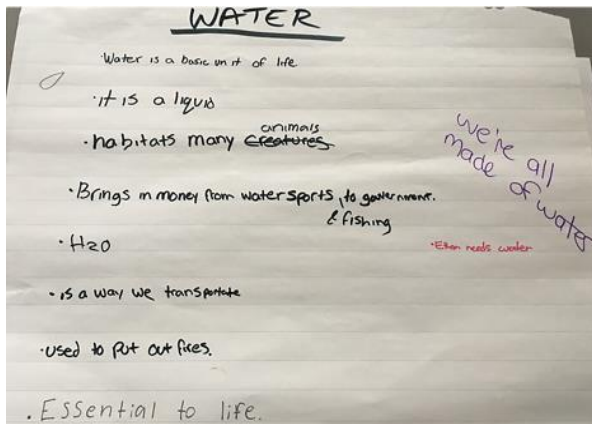 WATER
·Water is a basic unit of life
·it is a liquid
·habitats many creatures animals
·Brings in money from water sports, to government.
& fishing
·H2O
·is a way we transportate
·used to put out fires.
·Essential to life.
we're all
made of water
·Ethan needs water